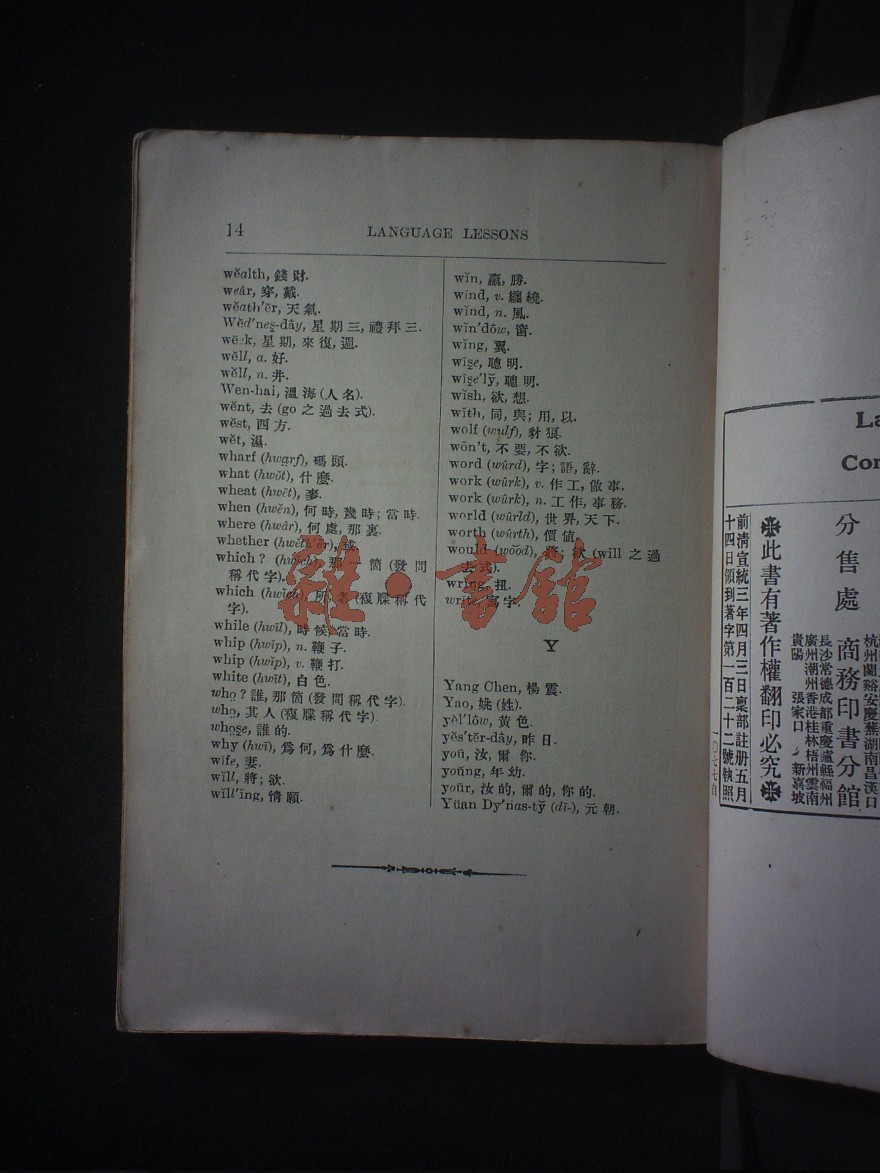 14 LANGUAGE LESSONS
wĕalth, 錢財.
weâr, 穿, 戴.
wĕath'ẽr, 天氣.
Wĕd'neṣ-dây, 星期三, 禮拜三.
week, 星期, 來復, 週.
wĕll, a. 好.
wĕll, n. 井.
Wen-hai, 溫海 (人名).
wĕnt, 去 (go 之過去式).
wĕst, 西方.
wĕt, 濕.
wharf (hwạrf), 碼頭.
what (hwŏt), 什麼.
wheat (hwēt), 麥.
when (hwĕn), 何時, 幾時; 當時.
where (hwâr), 何處, 那裏.
whether (hwĕth'ẽr), 或.
which? (hwĭch), 那一箇 (發問
稱代字).
which (hwĭch), 所, 者 (複牒稱代
字).
while (hwīl), 時候, 當時.
whip (hwĭp), n. 鞭子.
whip (hwĭp), v. 鞭打.
white (hwīt), 白色.
whọ? 誰, 那箇 (發問稱代字).
whọ, 其人 (複牒稱代字).
whọṣe, 誰的.
why (hwī), 爲何, 爲什麼.
wīfe, 妻.
wĭll, 將; 欲.
wĭll'ing, 情願.
wĭn, 贏, 勝.
wīnd, v. 纏繞.
wĭnd, n. 風.
wĭn'dôw, 窗.
wĭng, 翼.
wīṣe, 聰明.
wīṣe'lў, 聰明.
wĭsh, 欲, 想.
wĭth, 同, 與; 用, 以.
wolf (wulf), 豺狼.
wōn't, 不要, 不欲.
word (wûrd), 字; 語, 辭.
work (wûrk), v. 作工, 做事.
work (wûrk), n. 工作, 事務.
world (wûrld), 世界, 天下.
worth (wûrth), 價值.
would (wŏŏd), 將; 欲 (will 之過
去式).
wring, 扭.
write, 寫字.
Y
Yang Chen, 楊震.
Yao, 姚 (姓).
yĕl'lôw, 黃色.
yĕs'tẽr-dây, 昨日.
you, 汝, 爾, 你.
young, 年幼.
your, 汝的, 爾的, 你的.
Yüan Dy'nas-tў (dī-), 元朝.
雜·書館
La
Com
分售處
商務印書分館
杭州蘭谿安慶蕪湖南昌漢口
長沙常德成都重慶瀘縣福州
廣州潮州香港桂林梧州雲南
貴陽 張家口 新嘉坡
此書有著作權翻印必究
前清宣統三年四月三日稟部註册五月
十四日領到著字第一百二十二號執照